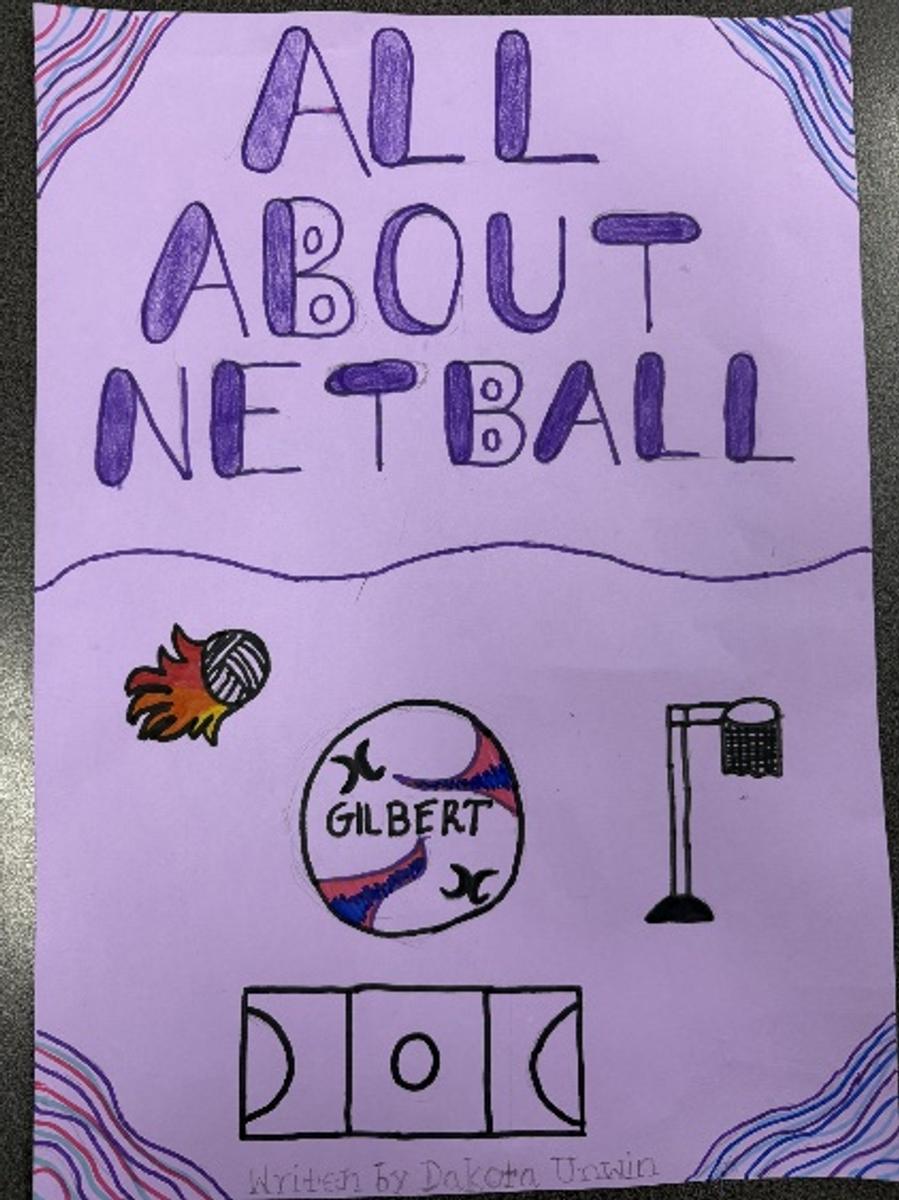 ALL
ABOUT
NETBALL
GILBERT
Writen by Dakota Unwin